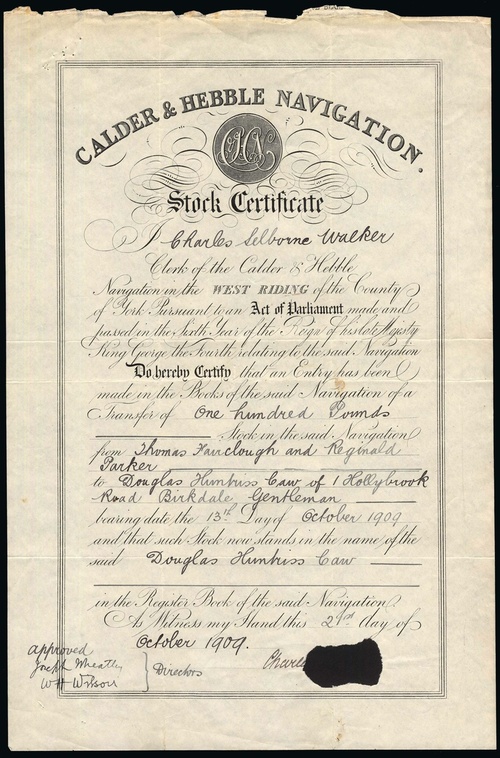 CALDER & HEBBLE NAVIGATION.
CHN
Stock Certificate
I Charles Selborne Walker
Clerk of the Calder & Hebble
Navigation in the WEST RIDING of the County
of York Pursuant to an Act of Parliament made and
passed in the Sixth Year of the Reign of his late Majesty
King George the Fourth relating to the said Navigation
Do hereby Certify that an Entry has been
made in the Books of the said Navigation of a
Transfer of One hundred Pounds
Stock in the said Navigation
from Thomas Fairclough and Reginald
Parker
to Douglas Huntriss Caw of 1 Hollybrook
Road Birkdale Gentleman
bearing date the 13th Day of October 1909
and that such Stock now stands in the name of the
said Douglas Huntriss Caw
in the Register Book of the said Navigation.
As Witness my Hand this day of
October 1909.
approved
Joseph Wheatley
W H Wilson
Directors
Charles